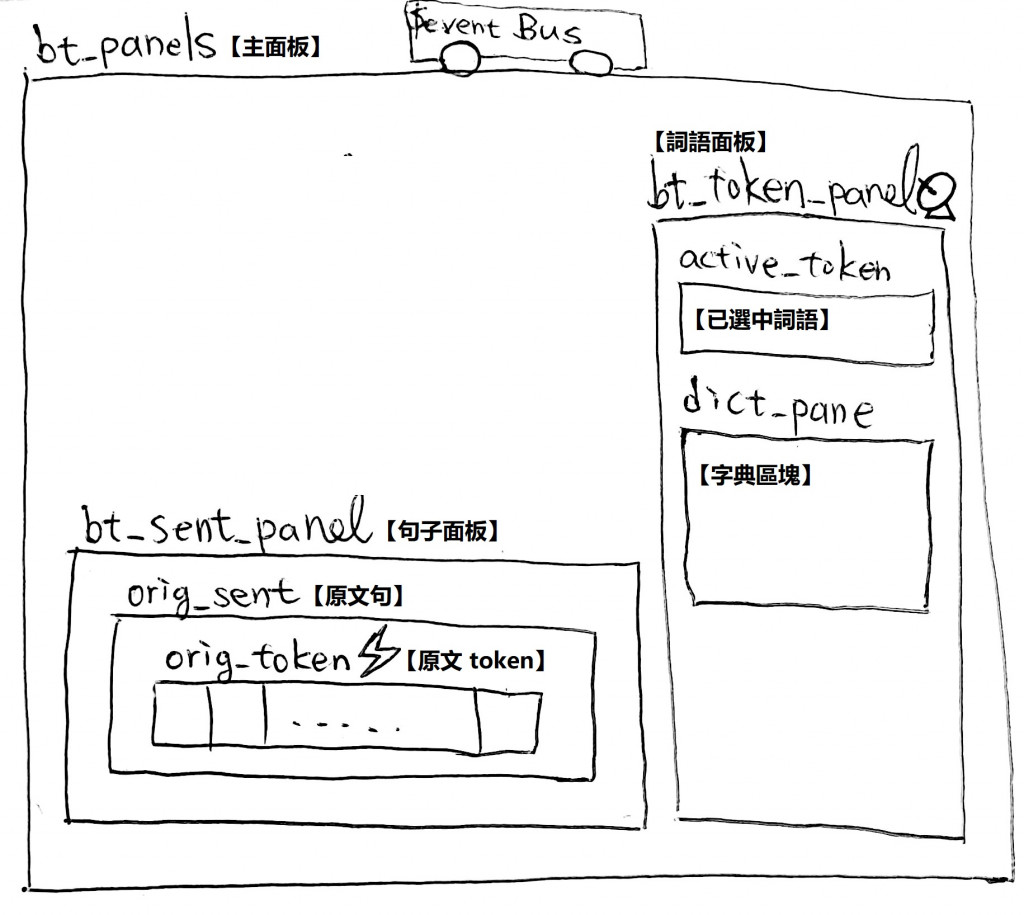 $event Bus
bt_panels【主面板】
【詞語面板】
bt_token_panel
active_token
【已選中詞語】
dict_pane
【字典區塊】
bt_sent_panel【句子面板】
orig_sent【原文句】
orig_token【原文 token】